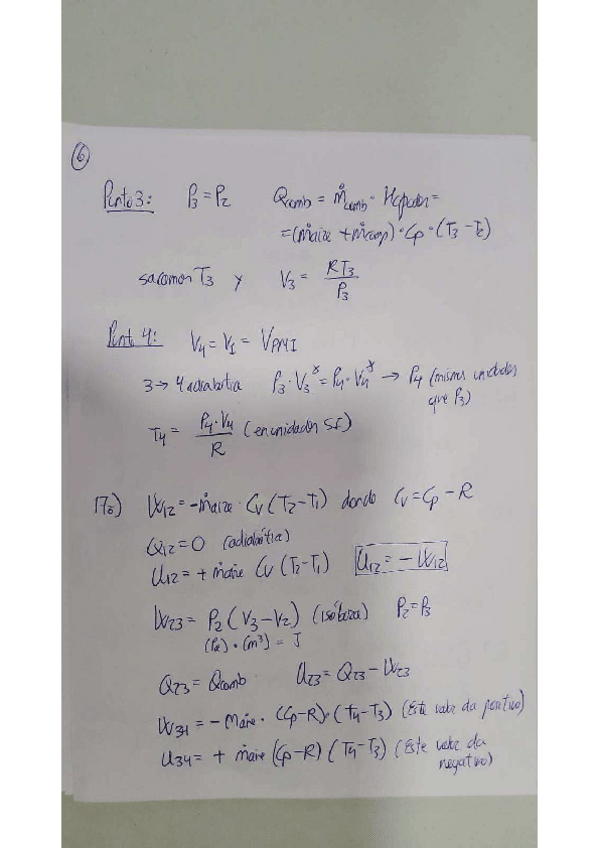 6
Punto 3: P3 = P2 Qcomb = ṁcomb · Hcpoder =
= (ṁaire + ṁcomb) · Cp · (T3 - T2)
sacamos T3 y V3 = RT3 / P3
Punt 4: V4 = V1 = VPMI
3 → 4 adiabática P3 · V3^γ = P4 · V4^γ → P4 (mismas unidades
que P3)
T4 = P4 · V4 / R (en unidades SI)
17º) W12 = - ṁaire · Cv (T2 - T1) donde Cv = Cp - R
Q12 = 0 (adiabática)
U12 = + ṁaire Cv (T2 - T1) U12 = - W12
W23 = P2 (V3 - V2) (isóbara) P2 = P3
(Pa) · (m³) = J
Q23 = Qcomb U23 = Q23 - W23
W34 = - ṁaire · (Cp - R) · (T4 - T3) (Este valor da positivo)
U34 = + ṁaire (Cp - R) (T4 - T3) (Este valor da
negativo)